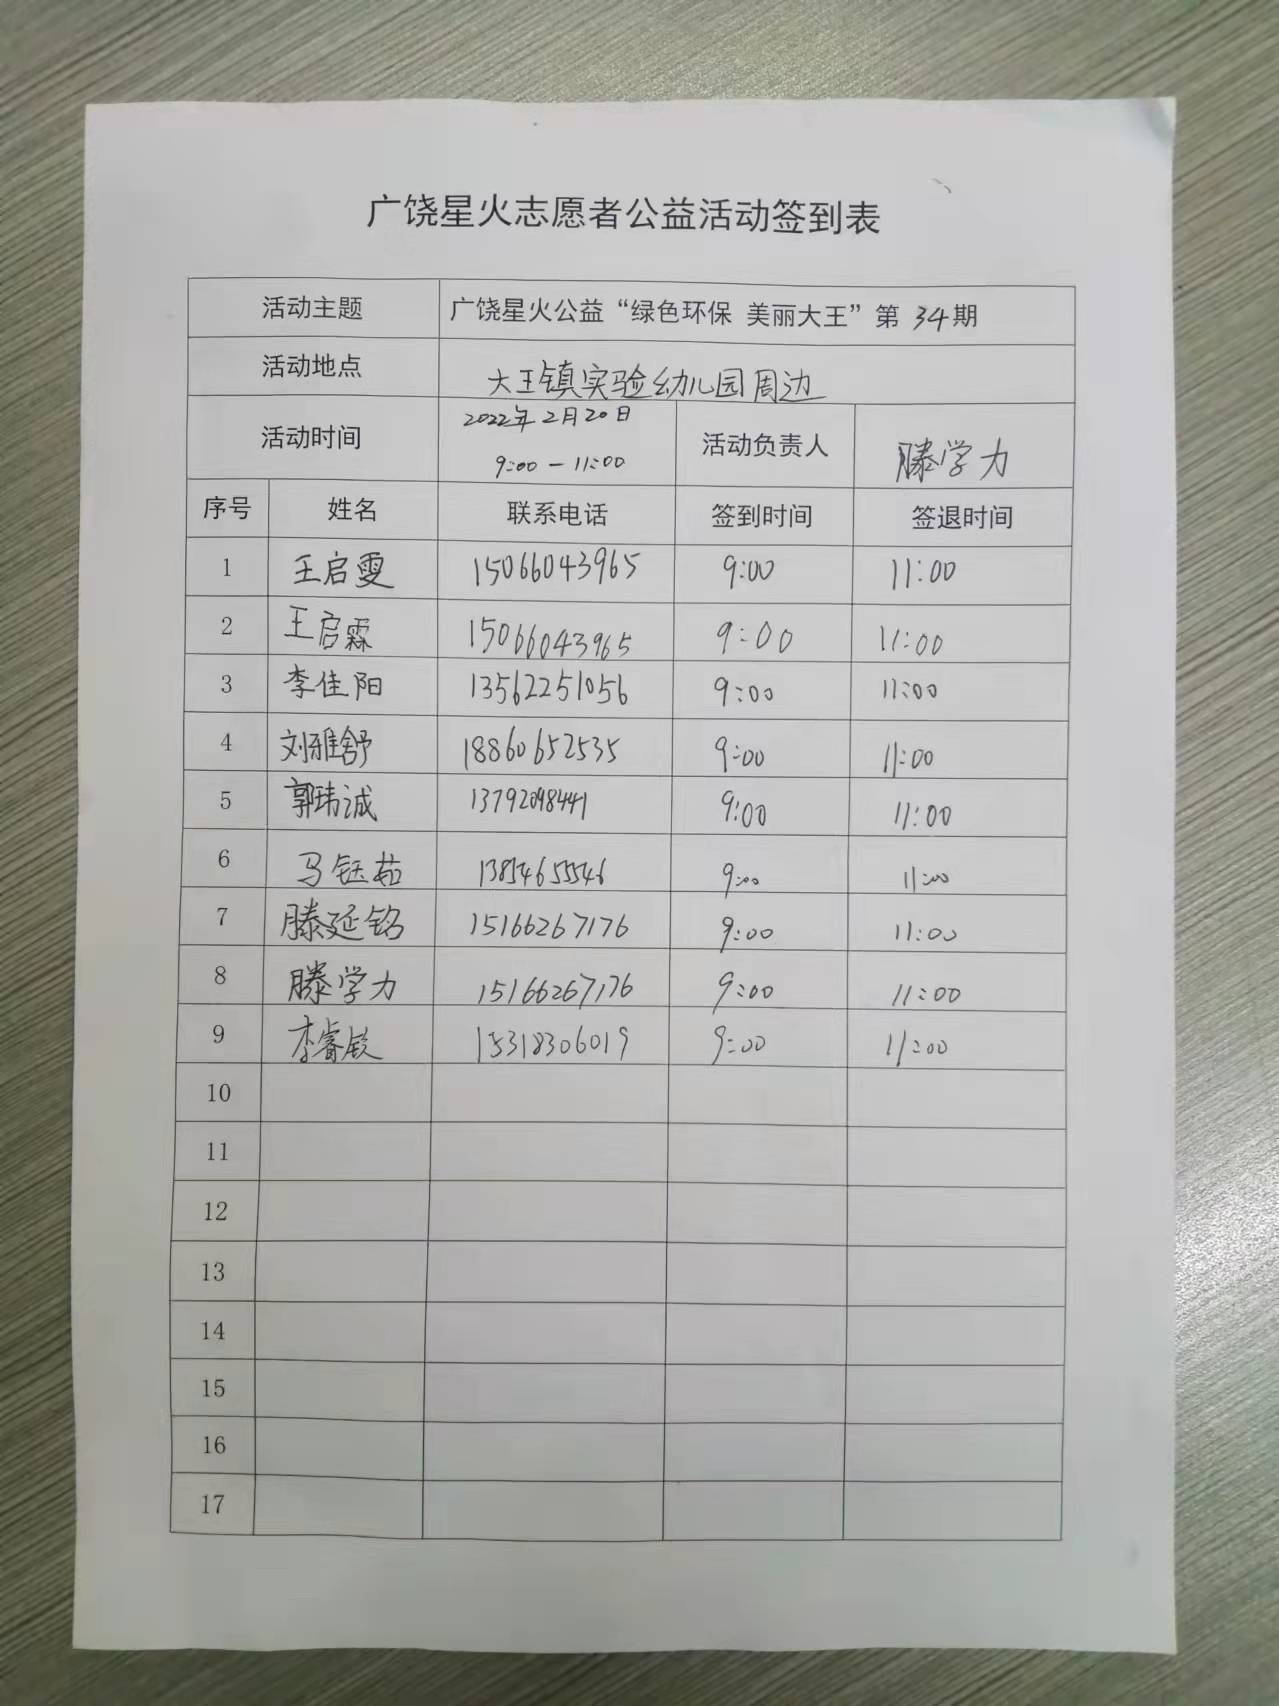 广饶星火志愿者公益活动签到表
活动主题 广饶星火公益“绿色环保 美丽大王”第 34 期
活动地点 大王镇实验幼儿园周边
活动时间 2022年2月20日 9:00 — 11:00 活动负责人 滕学力
序号 姓名 联系电话 签到时间 签退时间
1 王启雯 15066043965 9:00 11:00
2 王启霖 15066043965 9:00 11:00
3 李佳阳 13562251056 9:00 11:00
4 刘雅舒 18860652535 9:00 11:00
5 郭玮诚 13792098441 9:00 11:00
6 马钰茹 13854655546 9:00 11:00
7 滕延铭 15166267176 9:00 11:00
8 滕学力 15166267176 9:00 11:00
9 李睿钦 15318306019 9:00 11:00
10
11
12
13
14
15
16
17